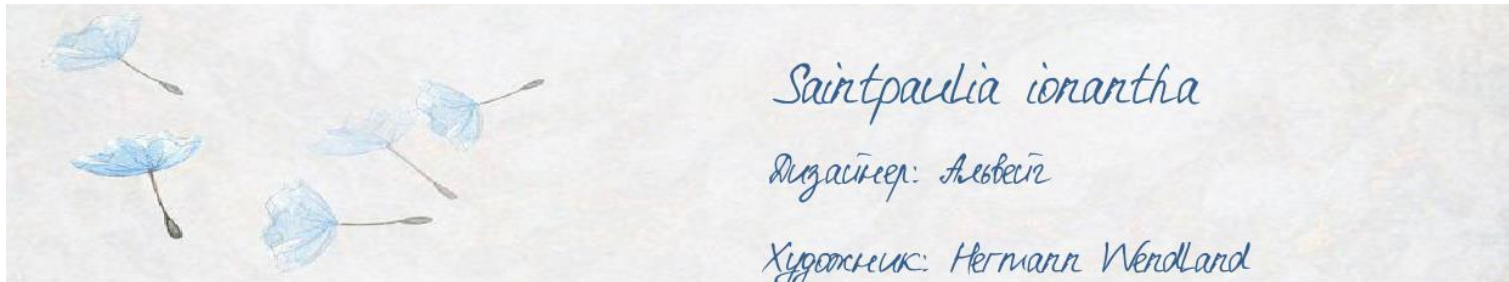 Saintpaulia ionantha
Дизайнер: Альвейг
Художник: Hermann Wendland